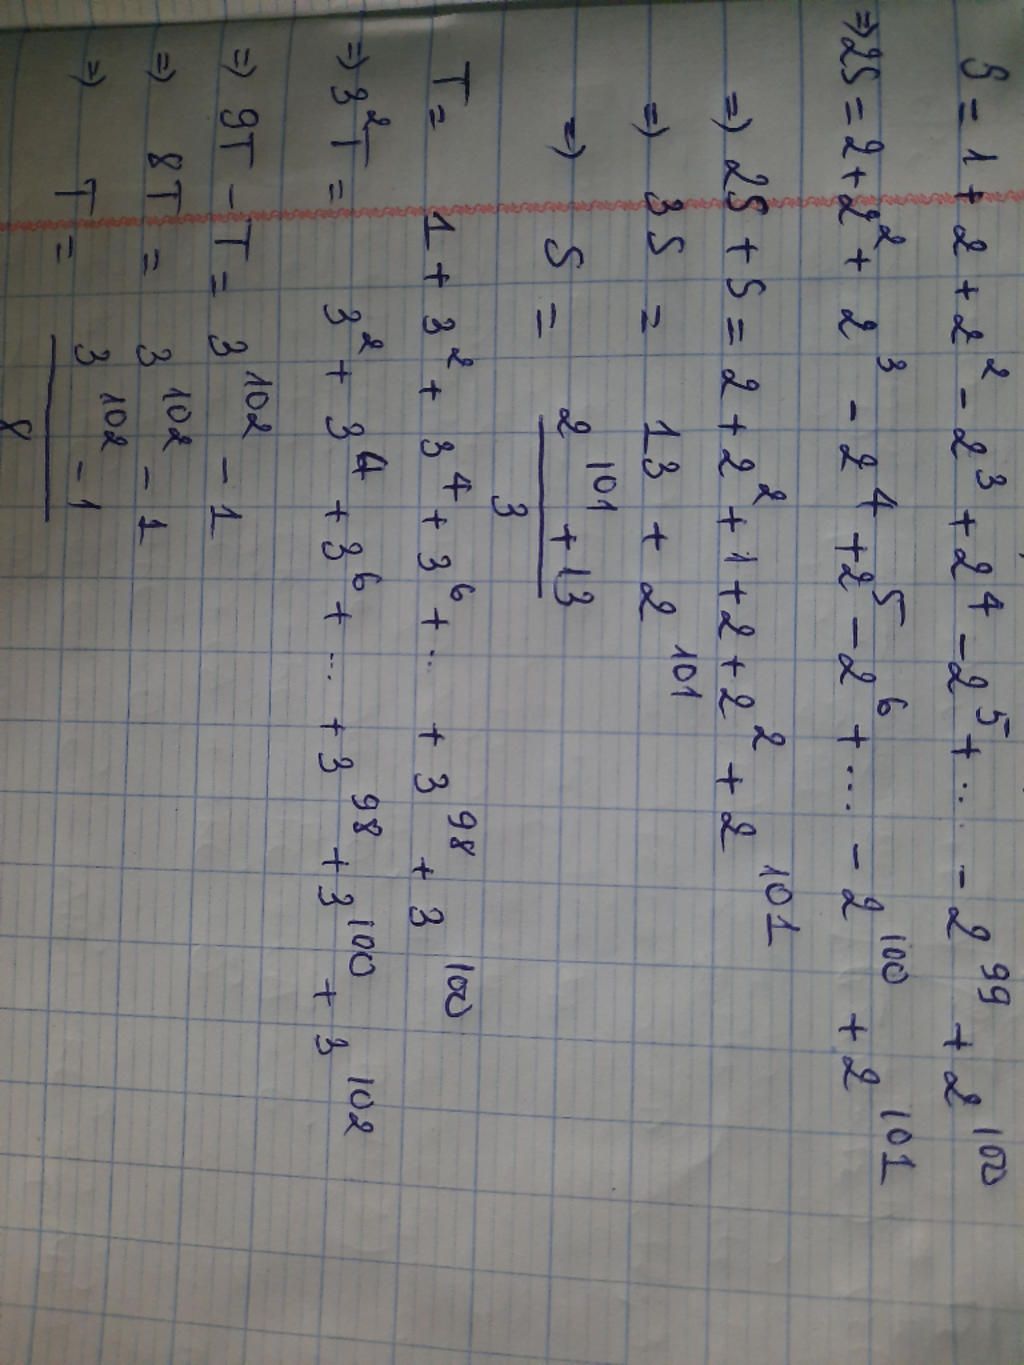 S = 1 + 2 + 2² - 2³ + 2⁴ - 2⁵ + ... - 2⁹⁹ + 2¹⁰⁰
⇒ 2S = 2 + 2² + 2³ - 2⁴ + 2⁵ - 2⁶ + ... - 2¹⁰⁰ + 2¹⁰¹
⇒ 2S + S = 2 + 2² + 1 + 2 + 2² + 2¹⁰¹
⇒ 3S = 13 + 2¹⁰¹
⇒ S = 2¹⁰¹ + 13
3
T = 1 + 3² + 3⁴ + 3⁶ + ... + 3⁹⁸ + 3¹⁰⁰
⇒ 3²T = 3² + 3⁴ + 3⁶ + ... + 3⁹⁸ + 3¹⁰⁰ + 3¹⁰²
⇒ 9T - T = 3¹⁰² - 1
⇒ 8T = 3¹⁰² - 1
⇒ T = 3¹⁰² - 1
8